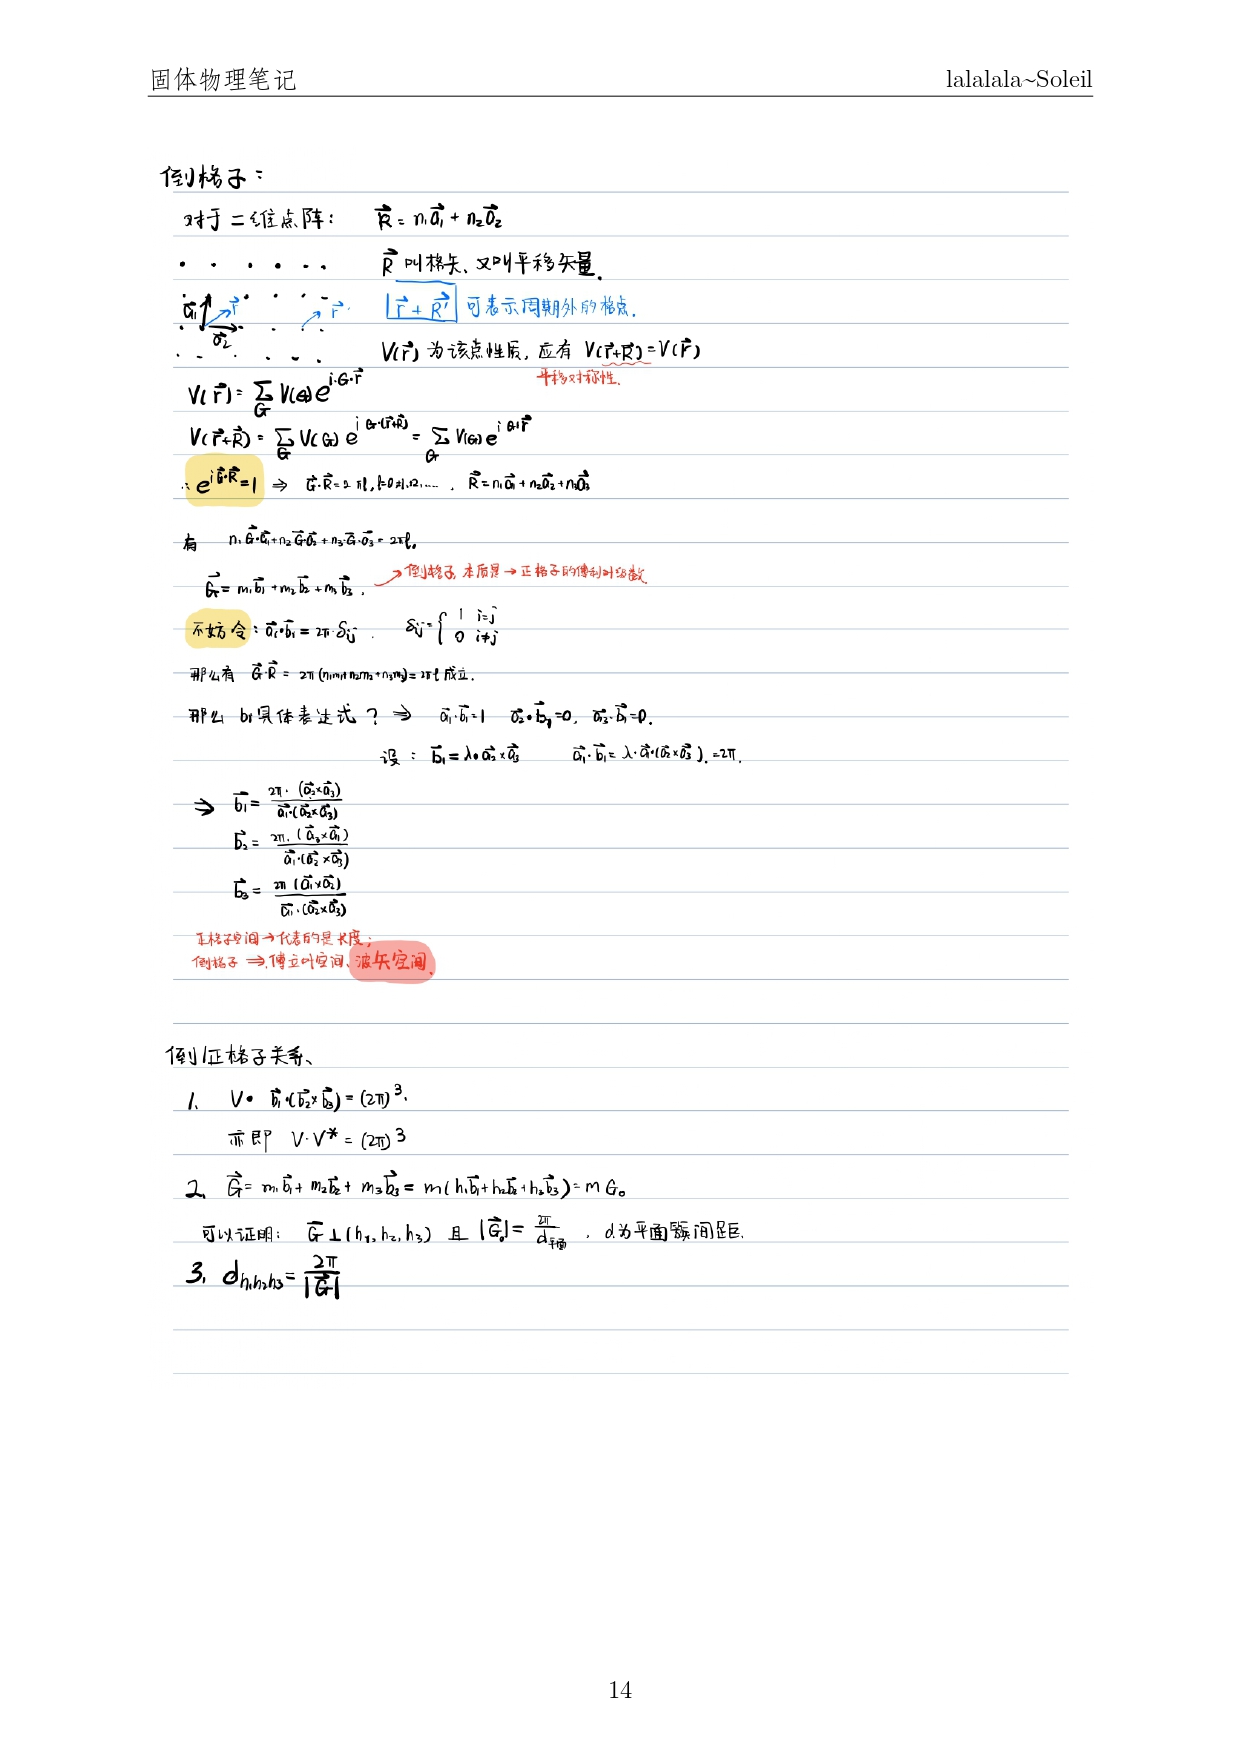 固体物理笔记
lalalala~Soleil
倒格子：
对于二维点阵： R⃗ = n₁a⃗₁ + n₂a⃗₂
R⃗ 叫格矢、又叫平移矢量.
a⃗₁ r⃗ r⃗
a⃗₂
r⃗ + R⃗ 可表示周期外的格点.
V(r⃗) 为该点性质, 应有 V(r⃗+R⃗) = V(r⃗)
平移对称性.
V(r⃗) = Σ_G V(G) e^{i·G·r⃗}
V(r⃗+R⃗) = Σ_G V(G) e^{i G·(r⃗+R⃗)} = Σ_G V(G) e^{i G·r⃗}
∴ e^{iG⃗·R⃗} = 1 ⇒ G⃗·R⃗ = 2πl, l=0,±1,±2,.... , R⃗ = n₁a⃗₁ + n₂a⃗₂ + n₃a⃗₃
有 n₁G⃗·a⃗₁ + n₂G⃗·a⃗₂ + n₃G⃗·a⃗₃ = 2πl.
G⃗ = m₁b⃗₁ + m₂b⃗₂ + m₃b⃗₃ . → 倒格子, 本质是 → 正格子的傅利叶级数
不妨令: a⃗ᵢ·b⃗ⱼ = 2π·δij . δij = { 1 i=j
0 i≠j
那么有 G⃗·R⃗ = 2π(n₁m₁+n₂m₂+n₃m₃) = 2πl 成立.
那么 b₁具体表达式 ? ⇒ a⃗₁·b⃗₁=1 a⃗₂·b⃗₁=0, a⃗₃·b⃗₁=0.
设： b⃗₁ = λ·a⃗₂×a⃗₃ a⃗₁·b⃗₁ = λ·a⃗₁·(a⃗₂×a⃗₃). = 2π.
⇒ b⃗₁ = 2π·(a⃗₂×a⃗₃) / a⃗₁·(a⃗₂×a⃗₃)
b⃗₂ = 2π·(a⃗₃×a⃗₁) / a⃗₁·(a⃗₂×a⃗₃)
b⃗₃ = 2π(a⃗₁×a⃗₂) / a⃗₁·(a⃗₂×a⃗₃)
正格子空间→代表的是长度;
倒格子 ⇒ 傅立叶空间、波矢空间.
倒/正格子关系、
1. V· b⃗₁·(b⃗₂×b⃗₃) = (2π)³.
亦即 V·V* = (2π)³
2. G⃗ = m₁b⃗₁ + m₂b⃗₂ + m₃b⃗₃ = m(h₁b⃗₁+h₂b⃗₂+h₃b⃗₃) = m G₀
可以证明: G⃗⊥(h₁,h₂,h₃) 且 |G⃗₀| = 2π/d平面 , d为平面簇间距.
3. d_{h₁h₂h₃} = 2π/|G⃗|
14